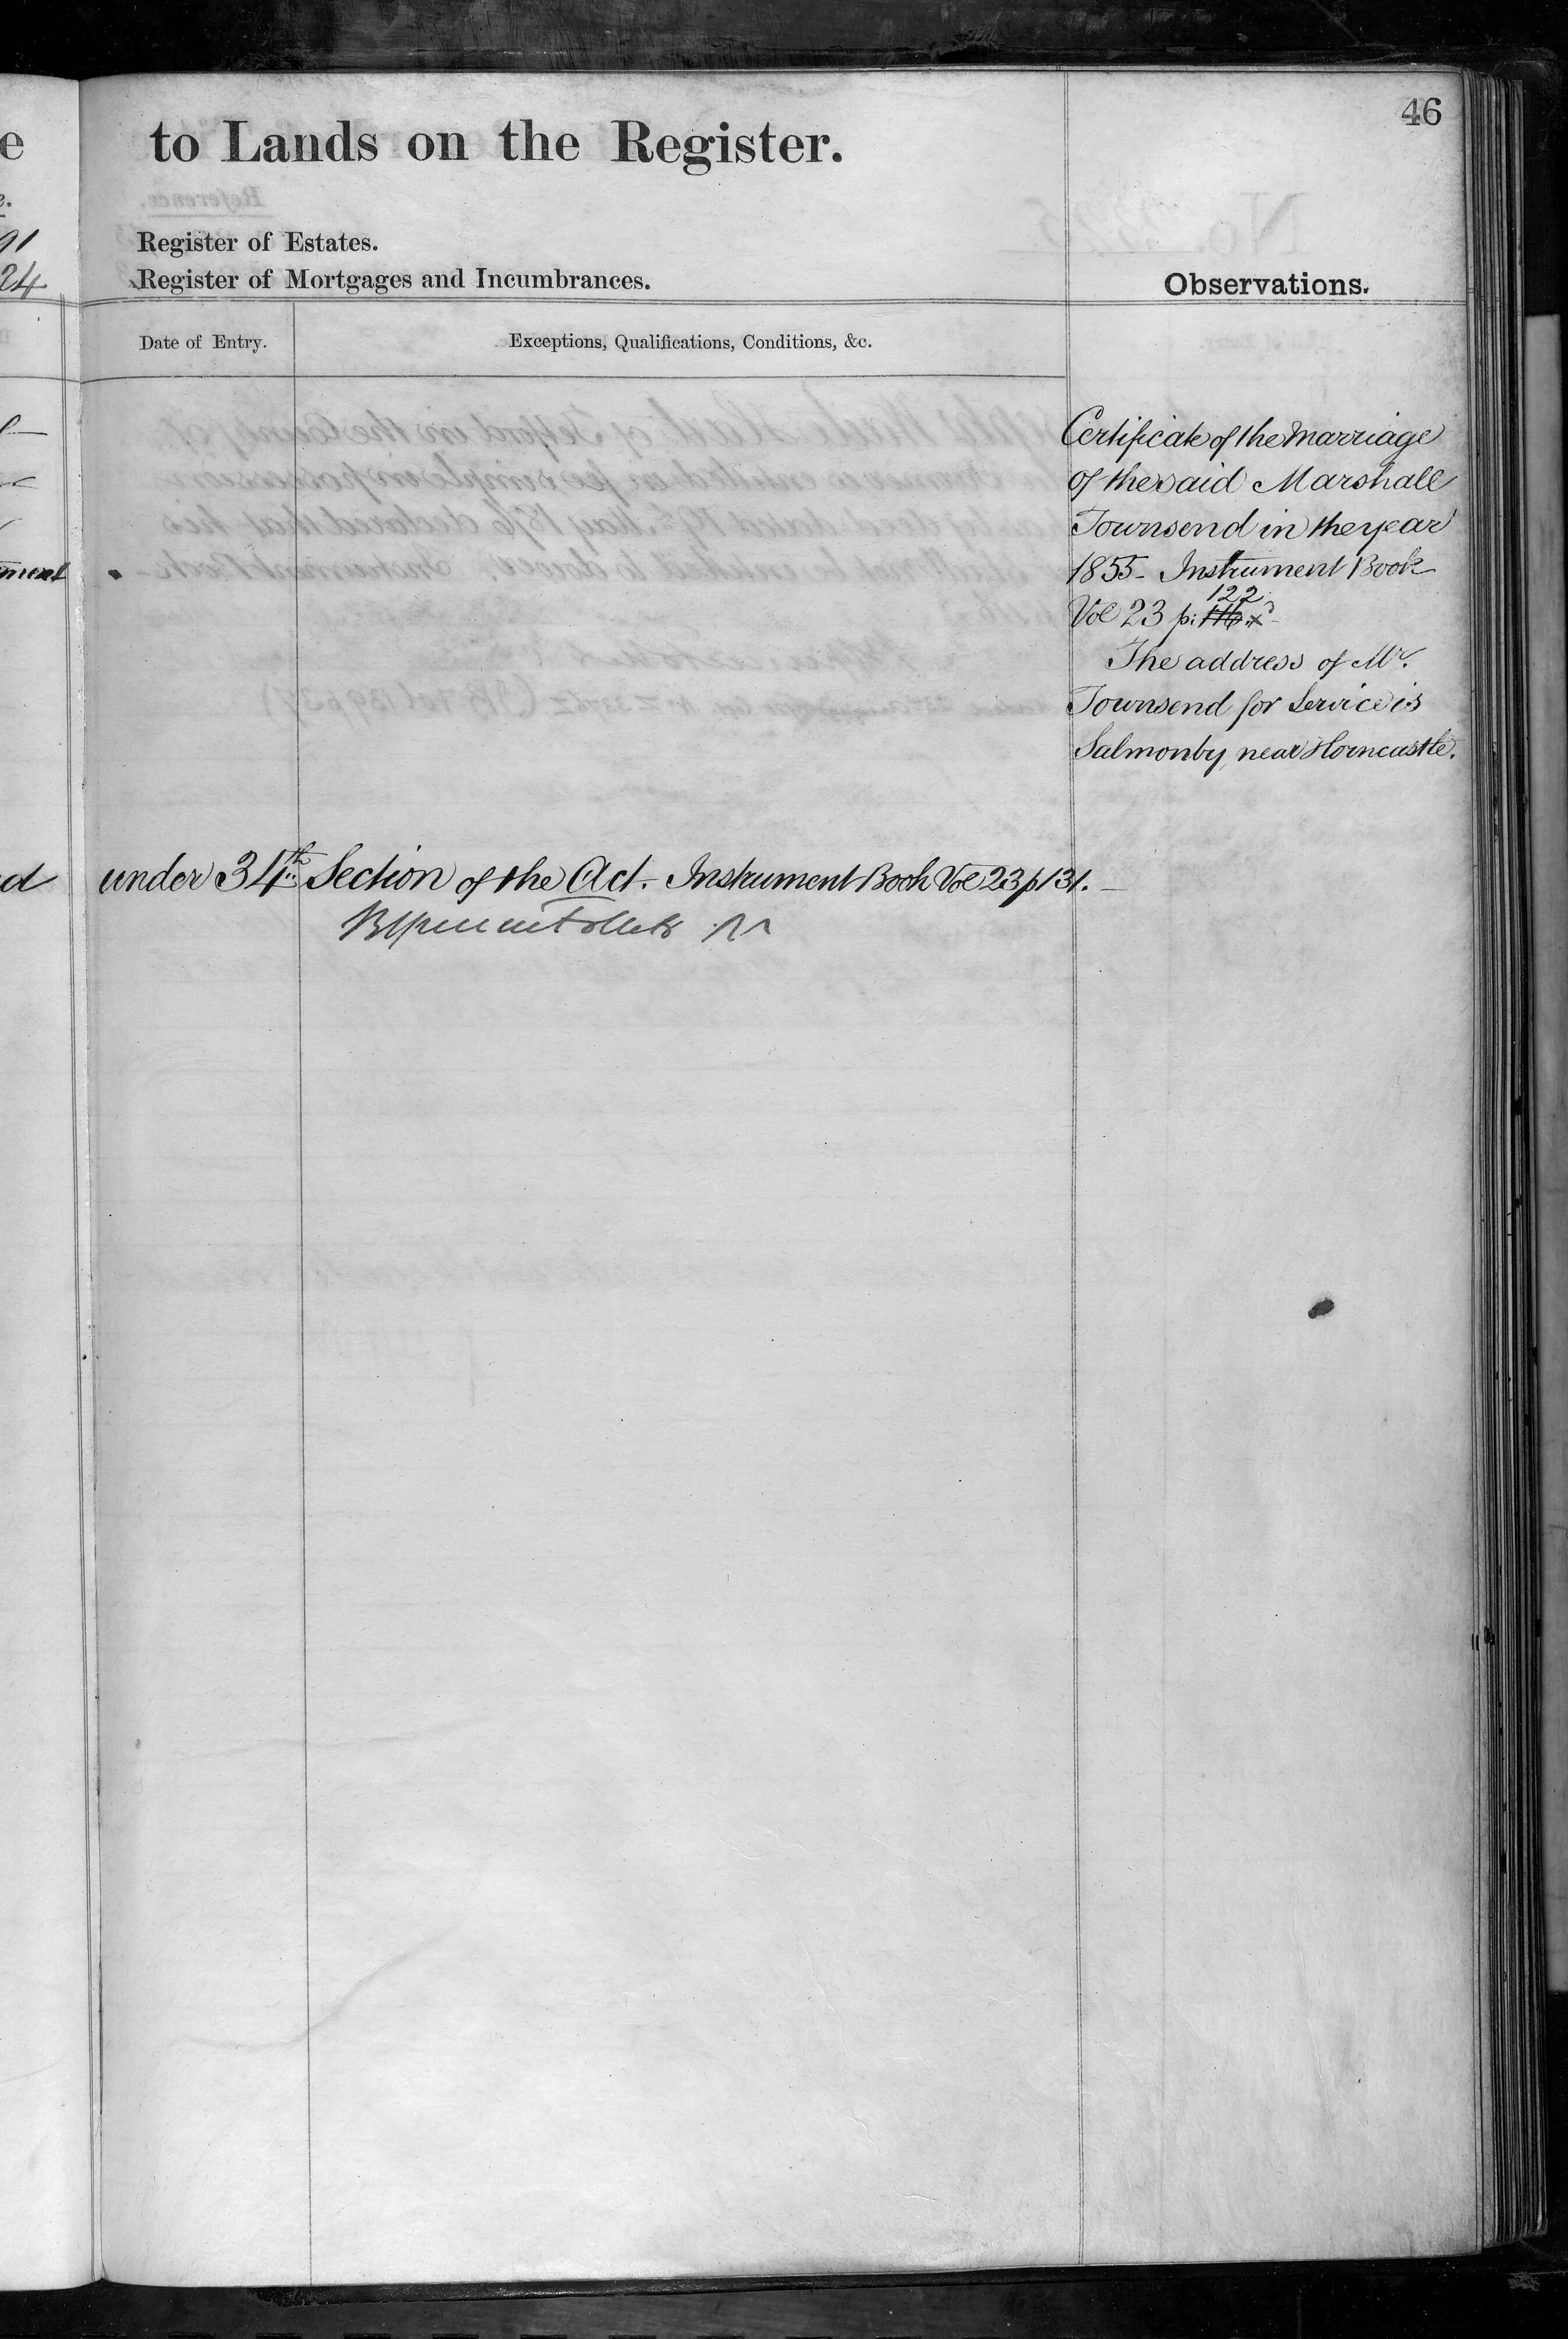 46
to Lands on the Register.
Register of Estates.
Register of Mortgages and Incumbrances.
Observations.
Date of Entry.
Exceptions, Qualifications, Conditions, &c.
Certificate of the marriage
of the said Marshall
Townsend in the year
1855 - Instrument Book
122
Vol 23 p: 116
The address of Mr.
Townsend for Service is
Salmonby near Horncastle.
under 34th Section of the Act. Instrument Book Vol 23 p 131.